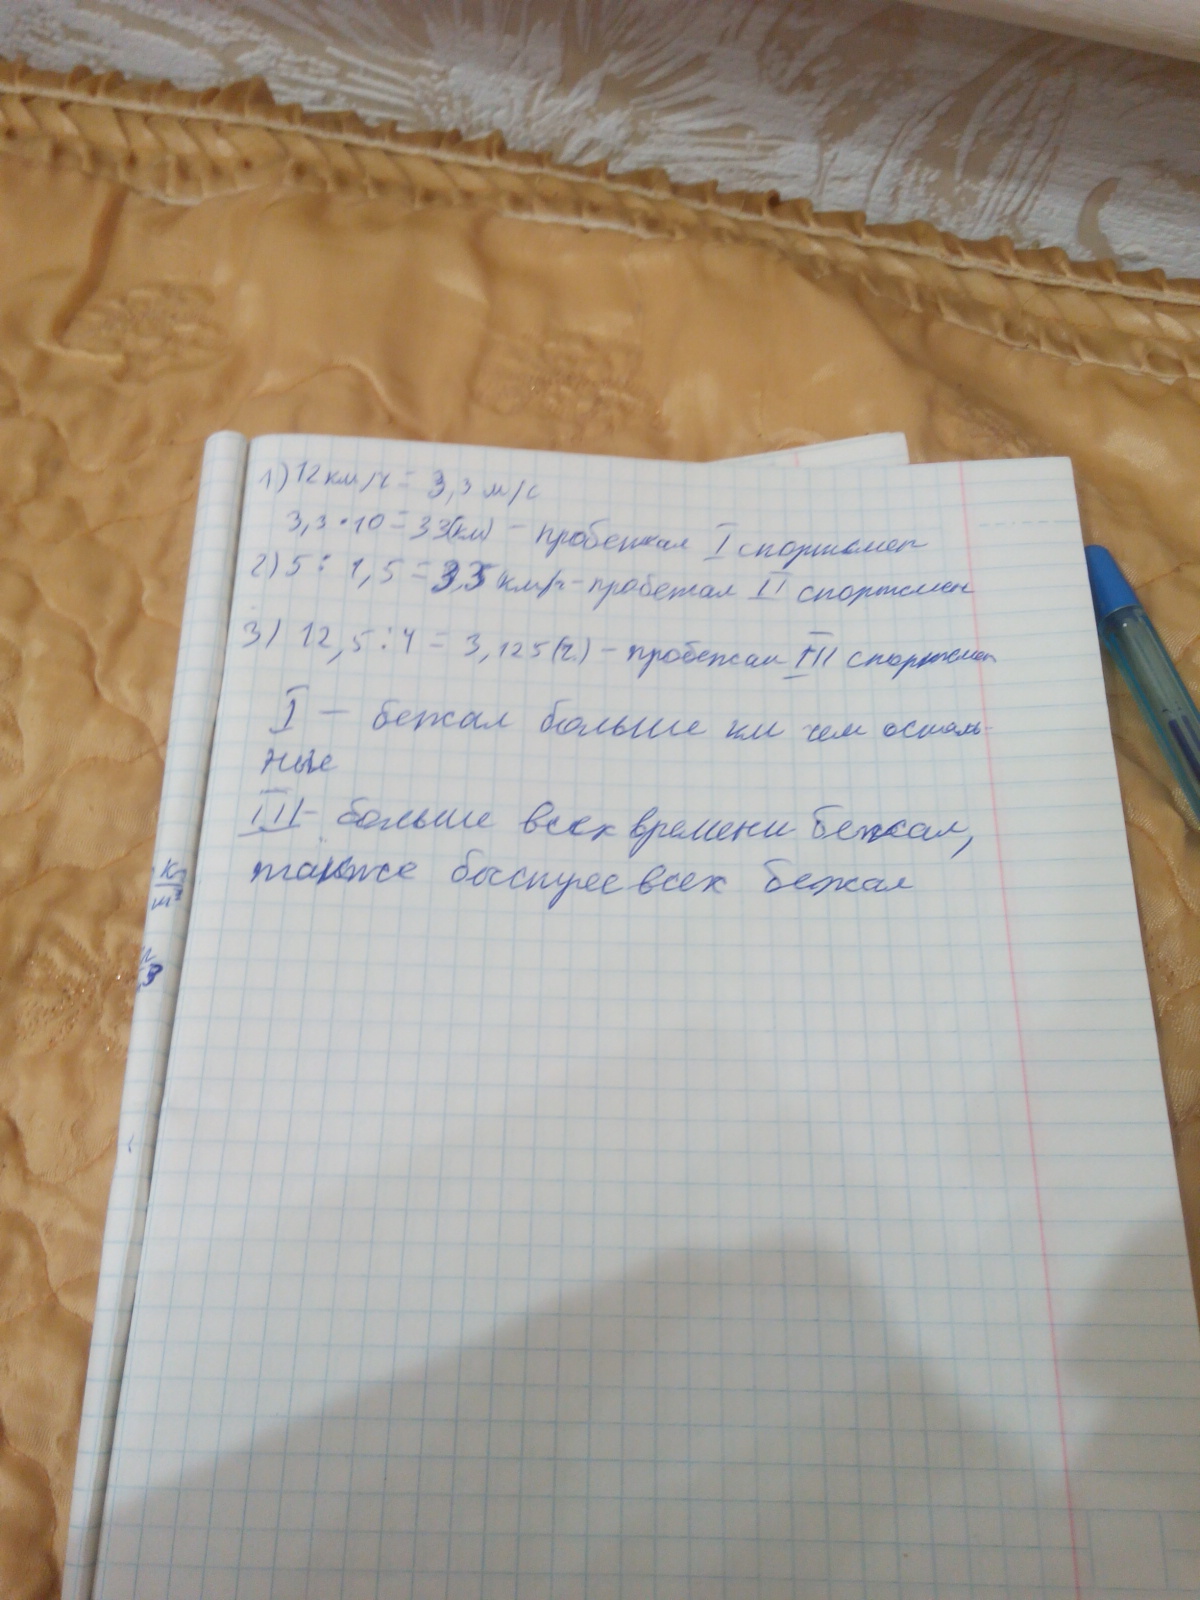 1) 12 км/ч = 3,3 м/с
3,3 · 10 = 33(км) – пробежал I спортсмен
2) 5 : 1,5 = 3,5 км/ч – пробежал II спортсмен
3) 12,5 : 4 = 3,125 (ч.) – пробежал III спортсмен
I – бежал больше км чем осталь-
ные
III – больше всех времени бежал,
также быстрее всех бежал